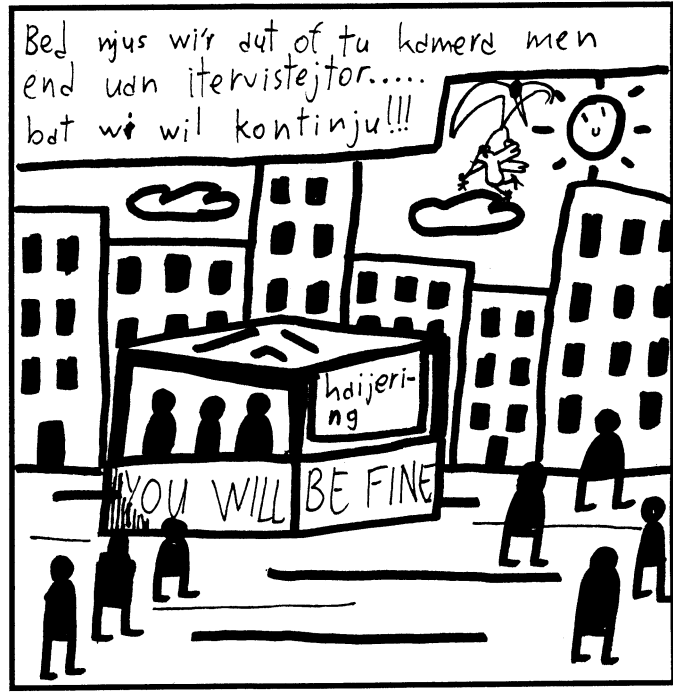 Bed njus wi'r aut of tu kamera men
end uan itervistejtor.....
bat wi wil kontinju!!!
haijeri-
ng
YOU WILL BE FINE